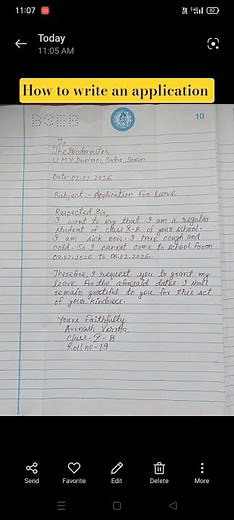 11:07
Today
11:05 AM
How to write an application
10
To,
The Headmaster
Date:-02.02.2026
Subject:- Application for Leave
Respected Sir,
I want to say that I am a regular
student of class X-B of your school.
I am sick now. I have cough and
cold. So I cannot come to school from
02.02.2026 to
Therefore, I request you to grant my
leave for the aforesaid dates. I shall
remain grateful to you for this act
of your kindness.
Yours Faithfully
Avinash Verma
Class-X-B
Roll no-19
Send
Favorite
Edit
Delete
More